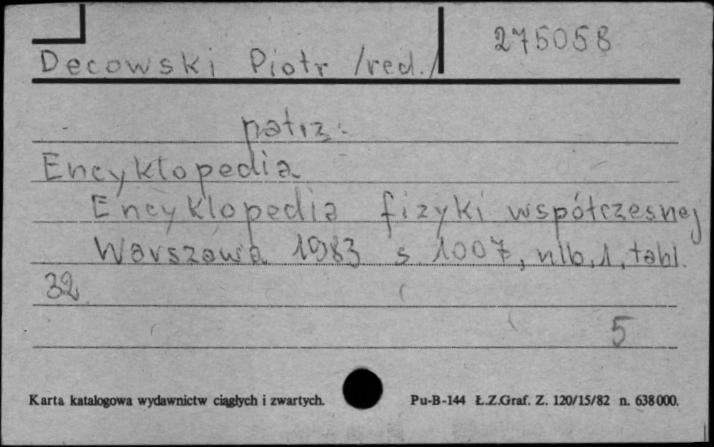 275058
Decowski Piotr /red./
patrz:
Encyklopedia
Encyklopedia fizyki współczesnej
Warszawa 1983 s 1007, nlb. 1, tabl.
32
5
Karta katalogowa wydawnictw ciągłych i zwartych. Pu-B-144 Ł.Z.Graf. Z. 120/15/82 n. 638000.